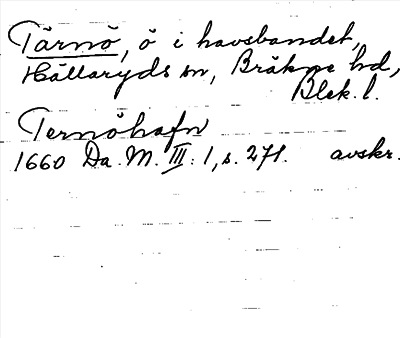 Tärnö, ö i havsbandet,
Hällaryds sn, Bräkne hd,
Blek. l.
Ternöhafn
1660 Da. M. III: 1, s. 271. avskr.